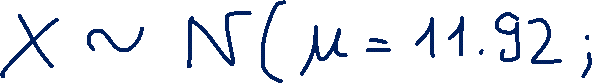 X ~ N(μ = 11.92 ;